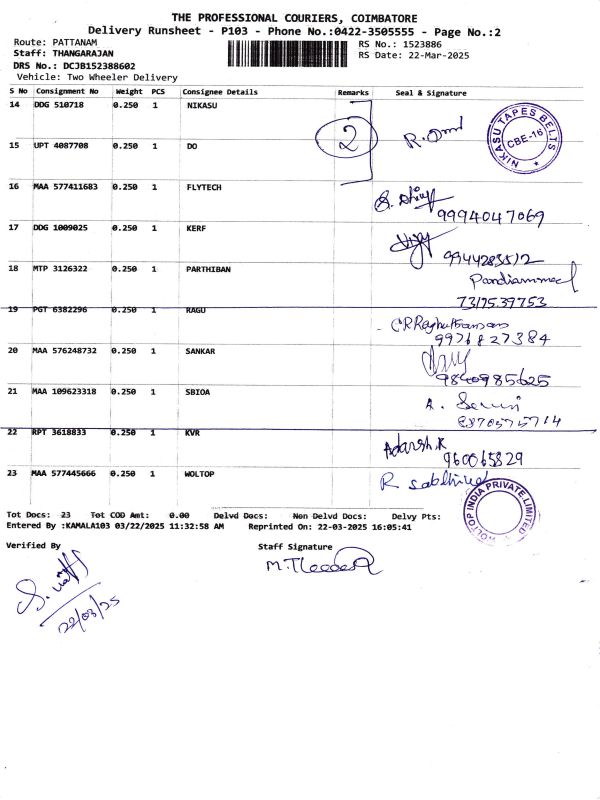 THE PROFESSIONAL COURIERS, COIMBATORE
Delivery Runsheet - P103 - Phone No.:0422-3505555 - Page No.:2
Route: PATTANAM
RS No.: 1523886
Staff: THANGARAJAN
RS Date: 22-Mar-2025
DRS No.: DCJB152388602
Vehicle: Two Wheeler Delivery
S No Consignment No Weight PCS Consignee Details Remarks Seal & Signature
14 DDG 510718 0.250 1 NIKASU
2
NIKASU TAPES BELTS CBE-16
15 UPT 4087708 0.250 1 DO
16 MAA 577411683 0.250 1 FLYTECH
9994047069
17 DDG 1009025 0.250 1 KERF
Vijay
9944283512
18 MTP 3126322 0.250 1 PARTHIBAN
7317539753
19 PGT 6382296 0.250 1 RAGU
9976827384
20 MAA 576248732 0.250 1 SANKAR
9840985625
21 MAA 109623318 0.250 1 SBIOA
22 RPT 3618833 0.250 1 KVR
Adarsh.K
960065829
23 MAA 577445666 0.250 1 WOLTOP
WOLTOP INDIA PRIVATE LIMITED
Tot Docs: 23 Tot COD Amt: 0.00 Delvd Docs: Non Delvd Docs: Delvy Pts:
Entered By :KAMALA103 03/22/2025 11:32:58 AM Reprinted On: 22-03-2025 16:05:41
Verified By
Staff Signature
22/03/25